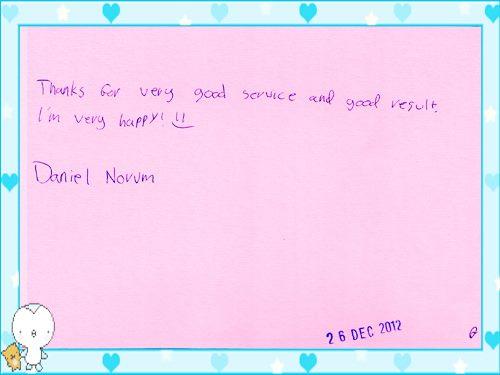 Thanks for very good service and good result.
I'm very happy! :)
Daniel Norum
26 DEC 2012